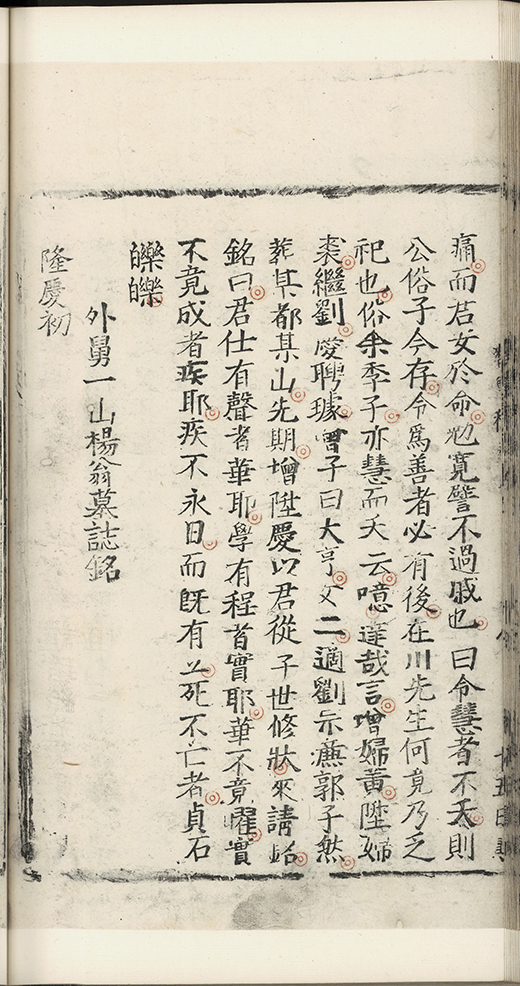 痛而君安於命勉寛譬不過戚也曰令慧者不夭則
公俗子今存令爲善者必有後在川先生何竟乃乏
祀也俗余季子亦慧而夭云噫達哉言增婦黄陞婦
裘繼劉愛聘璩曾子曰大亨女二適劉示藨郭子然
葬某都某山先期增陞慶以君從子世修狀來請銘
銘曰君仕有聲者華耶學有程者實耶華不竟曜實
不竟成者疾耶疾不永日而旣有立死不亡者貞石
皪皪
外舅一山楊翁墓誌銘
隆慶初